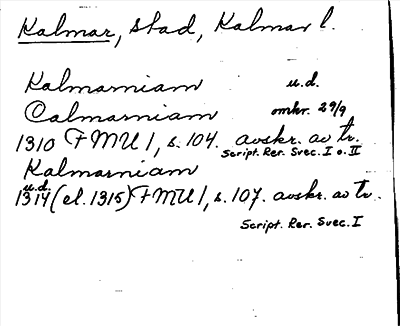 Kalmar, stad, Kalmar l.
Kalmarniam u.d.
Calmarniam omkr. 29/9
1310 FMU 1, s. 104. avskr. av tr.
Script. Rer. Svec. I o. II
Kalmarniam
u.d.
1314 (el. 1315) FMU 1, s. 107. avskr. av tr.
Script. Rer. Svec. I